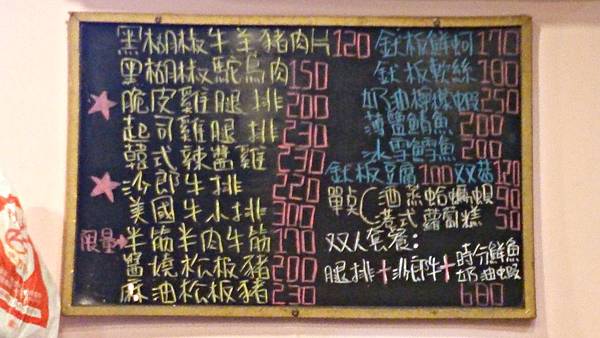 黑胡椒牛羊豬肉片120
黑胡椒鴕鳥肉150
脆皮雞腿排200
起司雞腿排230
韓式辣醬雞230
沙郎牛排220
美國牛小排300
限量 半筋半肉牛筋170
醬燒松板豬200
麻油松板豬230
鉄板鮮蚵170
鉄板軟絲180
奶油檸檬蝦250
薄鹽鯖魚200
冰雪鱈魚200
鉄板豆腐100双菇120
單點(酒蒸蛤蠣90
港式蘿蔔糕50
双人套餐:
腿排+沙郎牛+時分鮮魚
奶油蝦
680